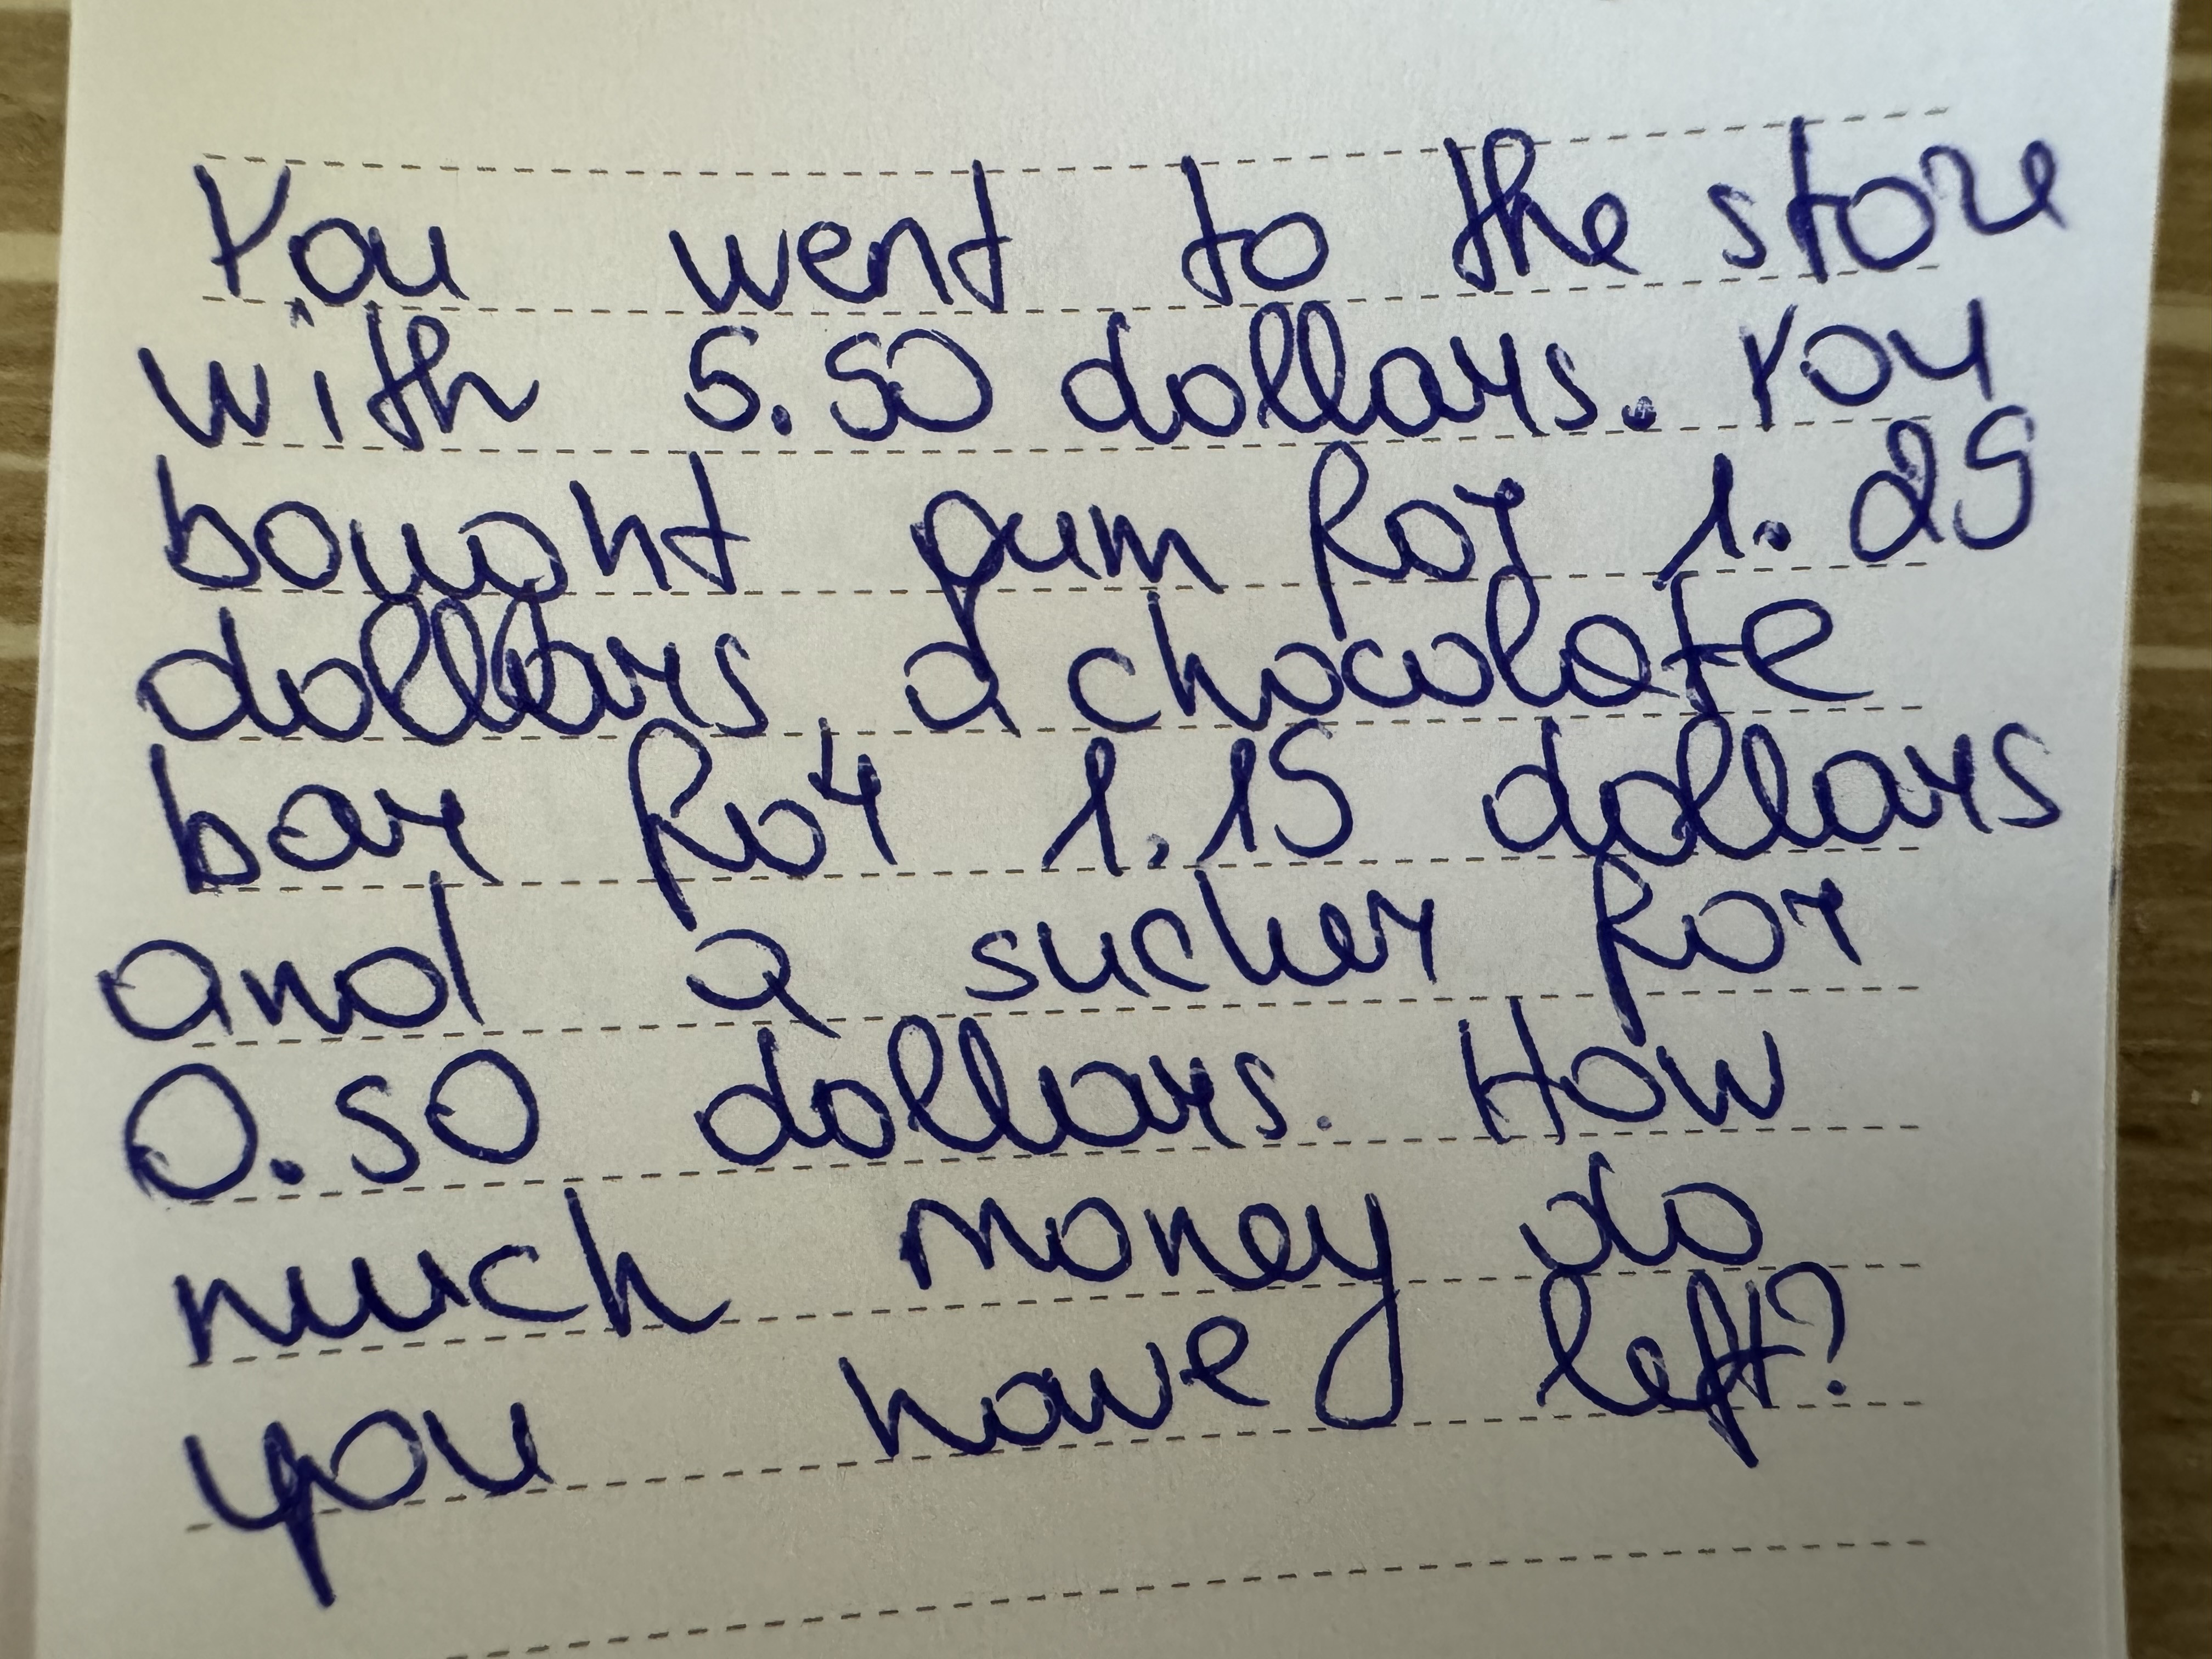 You went to the store
with 5.50 dollars. You
bought gum for 1.25
dollars, a chocolate
bar for 1.15 dollars
and a sucker for
0.50 dollars. How
much money do
you have left?